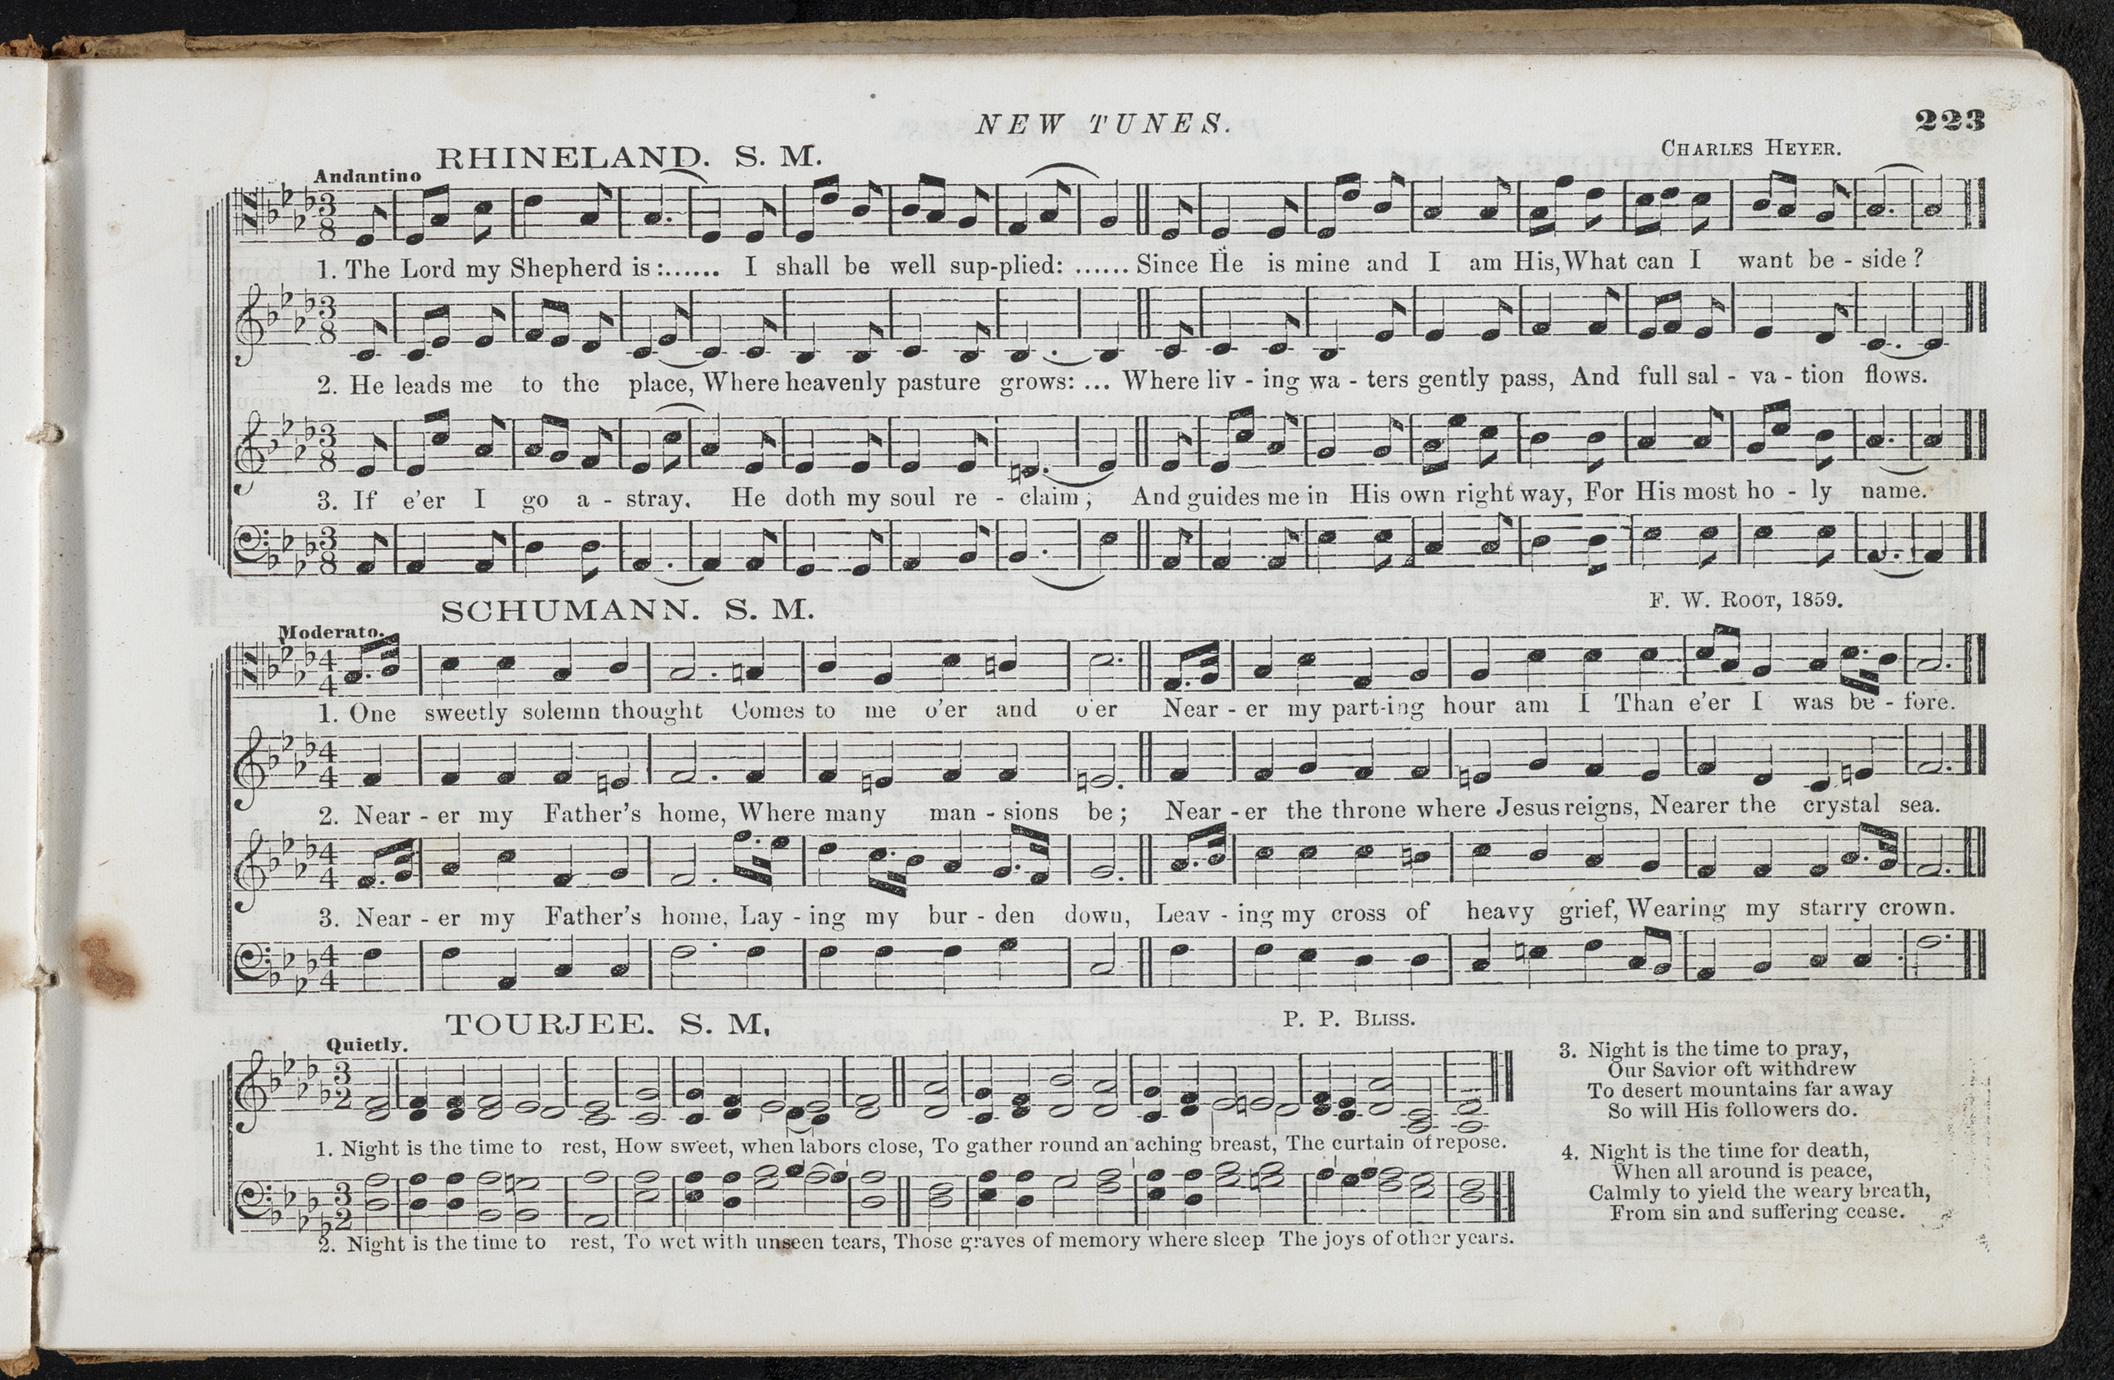 NEW TUNES.
223
RHINELAND. S. M.
CHARLES HEYER.
Andantino
1. The Lord my Shepherd is :...... I shall be well sup-plied: ...... Since He is mine and I am His, What can I want be - side ?
2. He leads me to the place, Where heavenly pasture grows: ... Where liv - ing wa - ters gently pass, And full sal - va - tion flows.
3. If e'er I go a - stray. He doth my soul re - claim ; And guides me in His own right way, For His most ho - ly name.
SCHUMANN. S. M.
F. W. ROOT, 1859.
Moderato.
1. One sweetly solemn thought Comes to me o'er and o'er Near - er my part-ing hour am I Than e'er I was be - fore.
2. Near - er my Father's home, Where many man - sions be ; Near - er the throne where Jesus reigns, Nearer the crystal sea.
3. Near - er my Father's home, Lay - ing my bur - den down, Leav - ing my cross of heavy grief, Wearing my starry crown.
TOURJEE. S. M,
P. P. BLISS.
Quietly.
1. Night is the time to rest, How sweet, when labors close, To gather round an aching breast, The curtain of repose.
2. Night is the time to rest, To wet with unseen tears, Those graves of memory where sleep The joys of other years.
3. Night is the time to pray,
Our Savior oft withdrew
To desert mountains far away
So will His followers do.
4. Night is the time for death,
When all around is peace,
Calmly to yield the weary breath,
From sin and suffering cease.